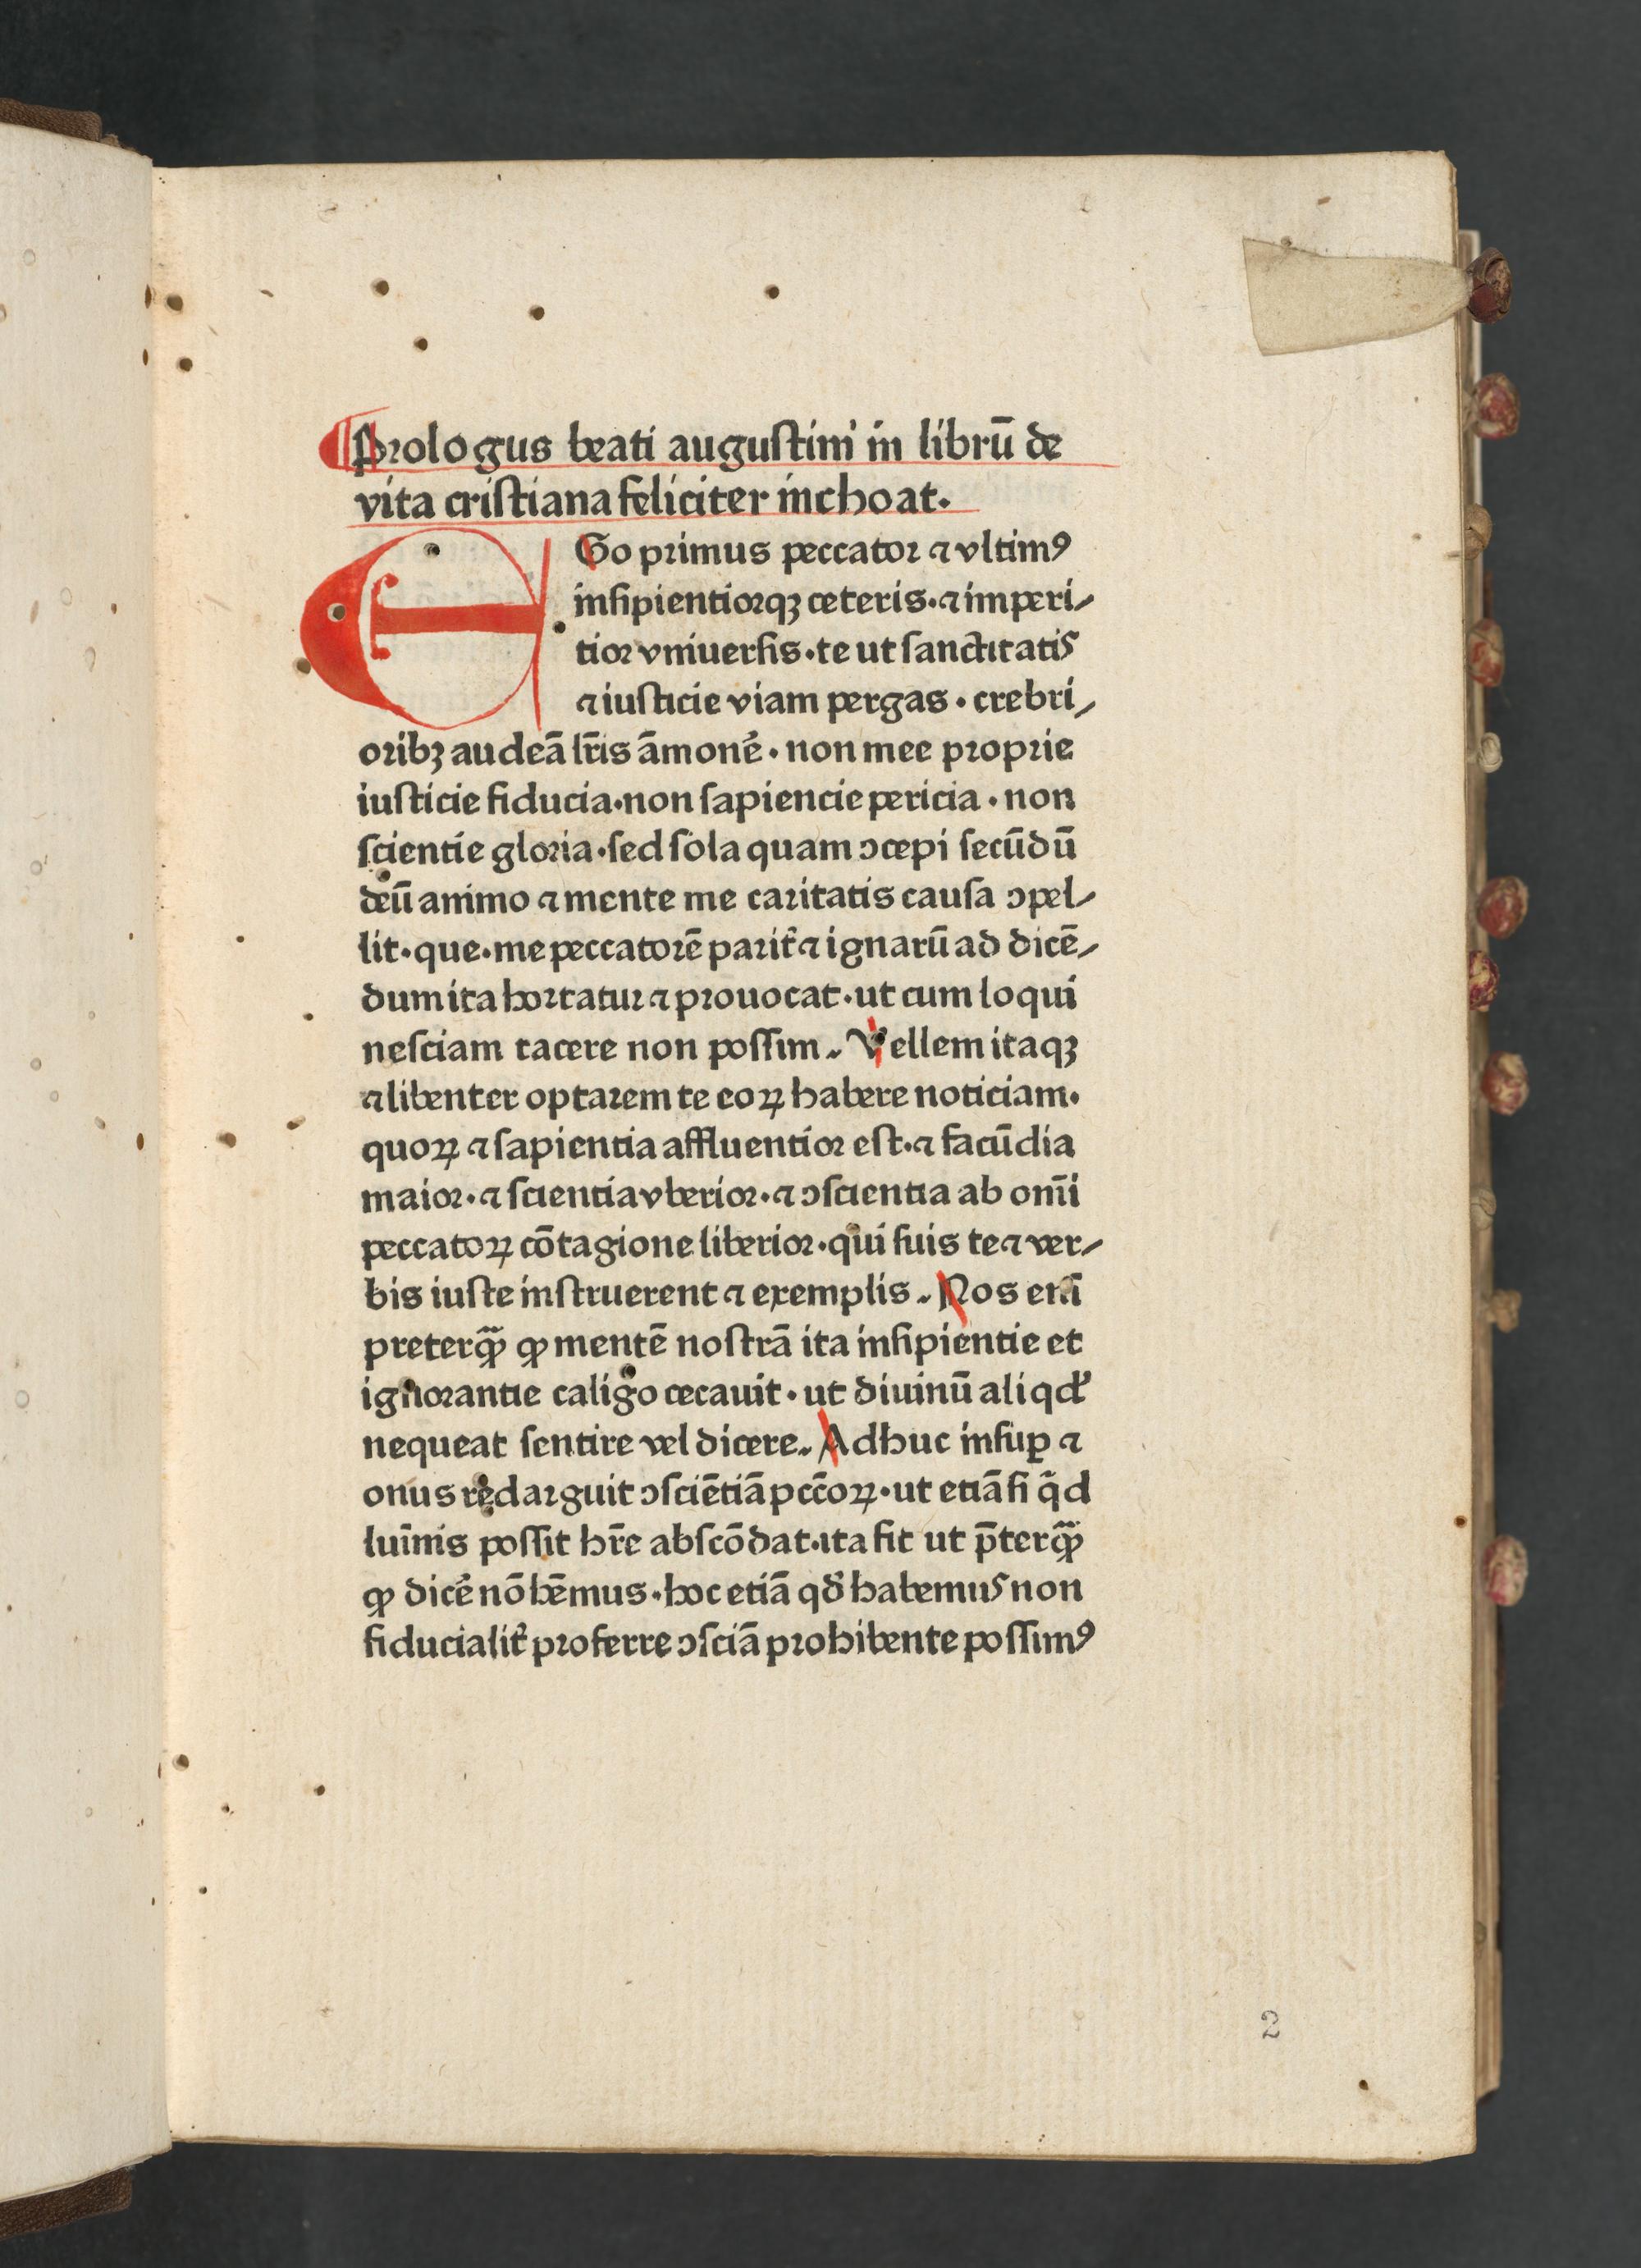 Prologus beati augustini in librū de
vita cristiana feliciter inchoat.
EGo primus peccator ⁊ vltimꝰ
insipientiorqꝫ ceteris·⁊ imperi⸗
tior vniuersis·te ut sanctitatis
⁊ iusticie viam pergas·crebri⸗
oribꝫ audeā lr̄is āmonē·non mee proprie
iusticie fiducia·non sapiencie pericia·non
scientie gloria·sed sola quam ↄcepi secūdū
deū animo ⁊ mente me caritatis causa ↄpel⸗
lit·que·me peccatorē parit̄ ⁊ ignarū ad dicē⸗
dum ita hortatur ⁊ prouocat·ut cum loqui
nesciam tacere non possim. Vellem itaqꝫ
⁊ libenter optarem te eoꝝ habere noticiam·
quoꝝ ⁊ sapientia affluentior est·⁊ facūdia
maior·⁊ scientia vberior·⁊ ↄscientia ab om̄i
peccatoꝝ cōtagione liberior·qui suis te ⁊ ver⸗
bis iuste instruerent ⁊ exemplis. Nos eni̅
preterqꝫ̄ ꝙ mentē nostrā ita insipientie et
ignorantie caligo cecauit·ut diuinū aliqd̓
nequeat sentire vel dicere. Adhuc insuꝑ ⁊
onus redarguit ↄsciētiā pcc̄oꝝ·ut etiā si q̄d
lui̅nis possit hr̄e abscōdat·ita fit ut p̄terqꝫ̄
ꝙ dicē nō hēmus·hoc etiā qd̓ habemus non
fiducialit̄ proferre ↄsciā prohibente possimꝰ
2